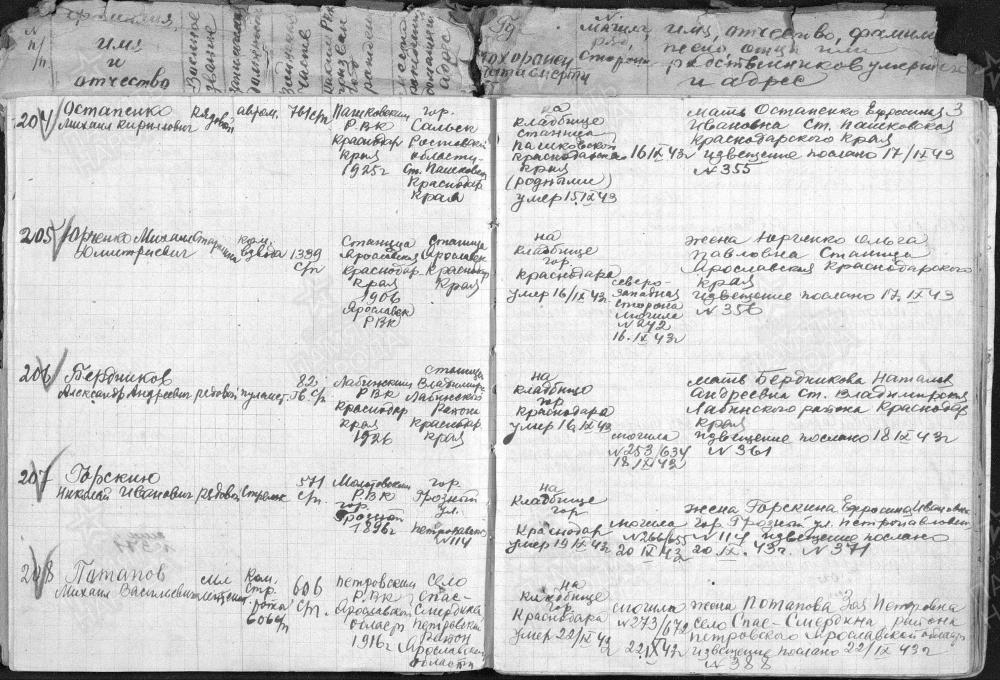 N п/п
фамилия,
имя
и
отчество
Воинское звание
должность
часть
Каким РВК призван
год рожден
место
адрес
Где похоронен
N могил
ряд
сторона
имя, отчество, фамил
отца или
родственников умершего
и адрес
204
Остапенко
Михаил Кирилович
рядовой
автом.
781сп
Пашковским
Р.В.К
Краснодар
края
1925г
гор.
Сальск
Ростовской
области
ст. Пашковск
Краснодар
края
на
кладбище
станица
Пашковской
Краснодарского
края
(родными)
умер 15/IX 43
16/IX 43г
мать Остапенко Ефросиния
Ивановна ст. Пашковская
Краснодарского края
извещение послано 17/IX 43
N 355
3
205
Юрченко Михаил
Дмитриевич
старшина
ком.
взвода
1339
с/п
Станица
Ярославская
Краснодар
края
1906
Ярославск
РВК
Станица
Ярославск
Краснодар
края
на
кладбище
гор.
Краснодара
умер 16/IX 43г
северо-
западная
сторона
могила
N 242
16.IX 43г
жена Юрченко Ольга
Павловна Станица
Ярославская Краснодарского
края
извещение послано 17.IX 43
N 356
206
Бердников
Александр Андреевич
рядовой
пулемет.
82
16 с/п
Лабинским
Р.В.К
Краснодар
края
1926
станица
Владимир
Лабинский
район
Краснодар
края
на
кладбище
гор
Краснодара
умер 16/IX 43
могила
N 253/634
18/IX 43г
мать Бердникова Наталия
Андреевна ст. Владимирская
Лабинского района Краснодар
края
извещение послано 18 IX 43г
N 361
207
Горскин
Николай Иванович
рядовой
стрелок
571
с/п.
Молотовским
Р.В.К
гор.
Грозный
1896г
гор.
Грозный
ул.
Петропавловс
N114
на
кладбище
гор
Краснодар
умер 19 IX 43г
могила
N 266/655
20 IX 43г
жена Горскина Ефросиния Ивановна
гор. Грозный ул. Петропавловск
N 114 извещение послано
20.IX.43г. N 371
208
Потапов
Михаил Васильевич
мл
лейтенант
ком.
стр.
рота
606 с/п
606
с/п.
Петровским
Р.В.К
Ярославской
области
1916г
село
Спас-
Смердина
Петровский
район
Ярославской
области
на
кладбище
гор.
Краснодара
умер 22/IX 43г
могила
N 273/672
22/IX 43г
жена Потапова Зоя Петровна
село Спас-Смердина, района
Петровского Ярославской област
извещение послано 22/IX 43г
N 388